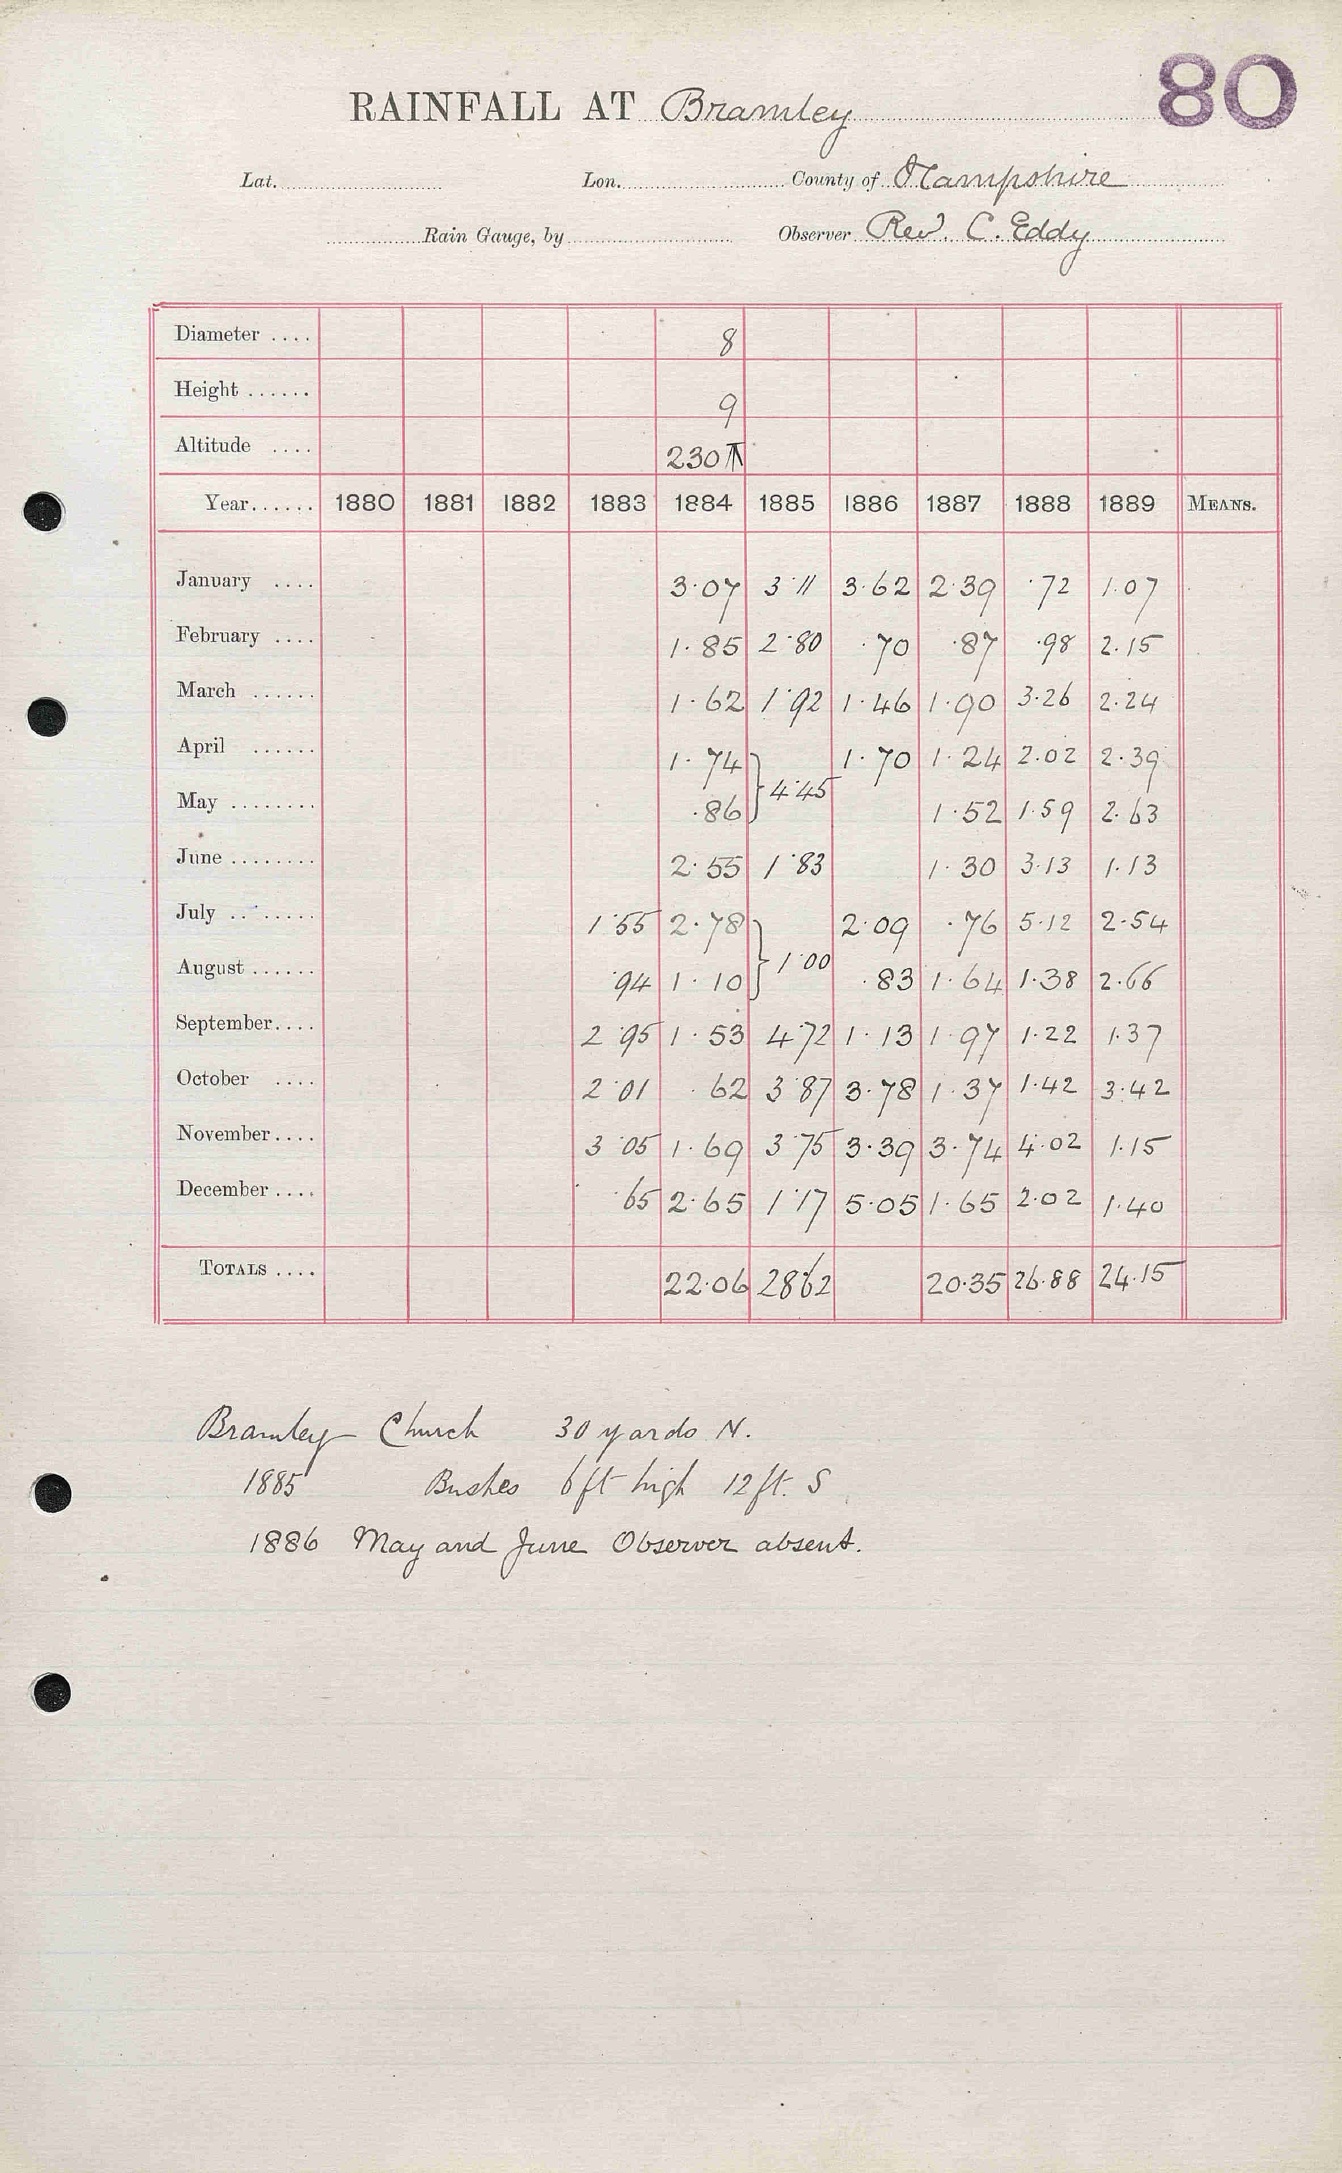 80
RAINFALL AT Bramley
Lat. Lon. County of Hampshire
Rain Gauge, by Observer Rev. C. Eddy
Diameter .... 8
Height ...... 9
Altitude .... 230
Year...... 1880 1881 1882 1883 1884 1885 1886 1887 1888 1889 MEANS.
January .... 3·07 3·11 3·62 2·39 ·72 1·07
February .... 1·85 2·80 ·70 ·87 ·98 2·15
March ...... 1·62 1·92 1·46 1·90 3·26 2·24
April ...... 1·74 } 4·45 1·70 1·24 2·02 2·39
May ........ ·86 1·52 1·59 2·63
June ........ 2·55 1·83 1·30 3·13 1·13
July ........ 1·55 2·78 } 1·00 2·09 ·76 5·12 2·54
August ...... ·94 1·10 ·83 1·64 1·38 2·66
September.... 2·95 1·53 4·72 1·13 1·97 1·22 1·37
October .... 2·01 ·62 3·87 3·78 1·37 1·42 3·42
November.... 3·05 1·69 3·75 3·39 3·74 4·02 1·15
December.... ·65 2·65 1·17 5·05 1·65 2·02 1·40
TOTALS .... 22·06 28·62 20·35 26·88 24·15
Bramley Church 30 yards N.
1885 Bushes 6ft high 12ft. S
1886 May and June Observer absent.